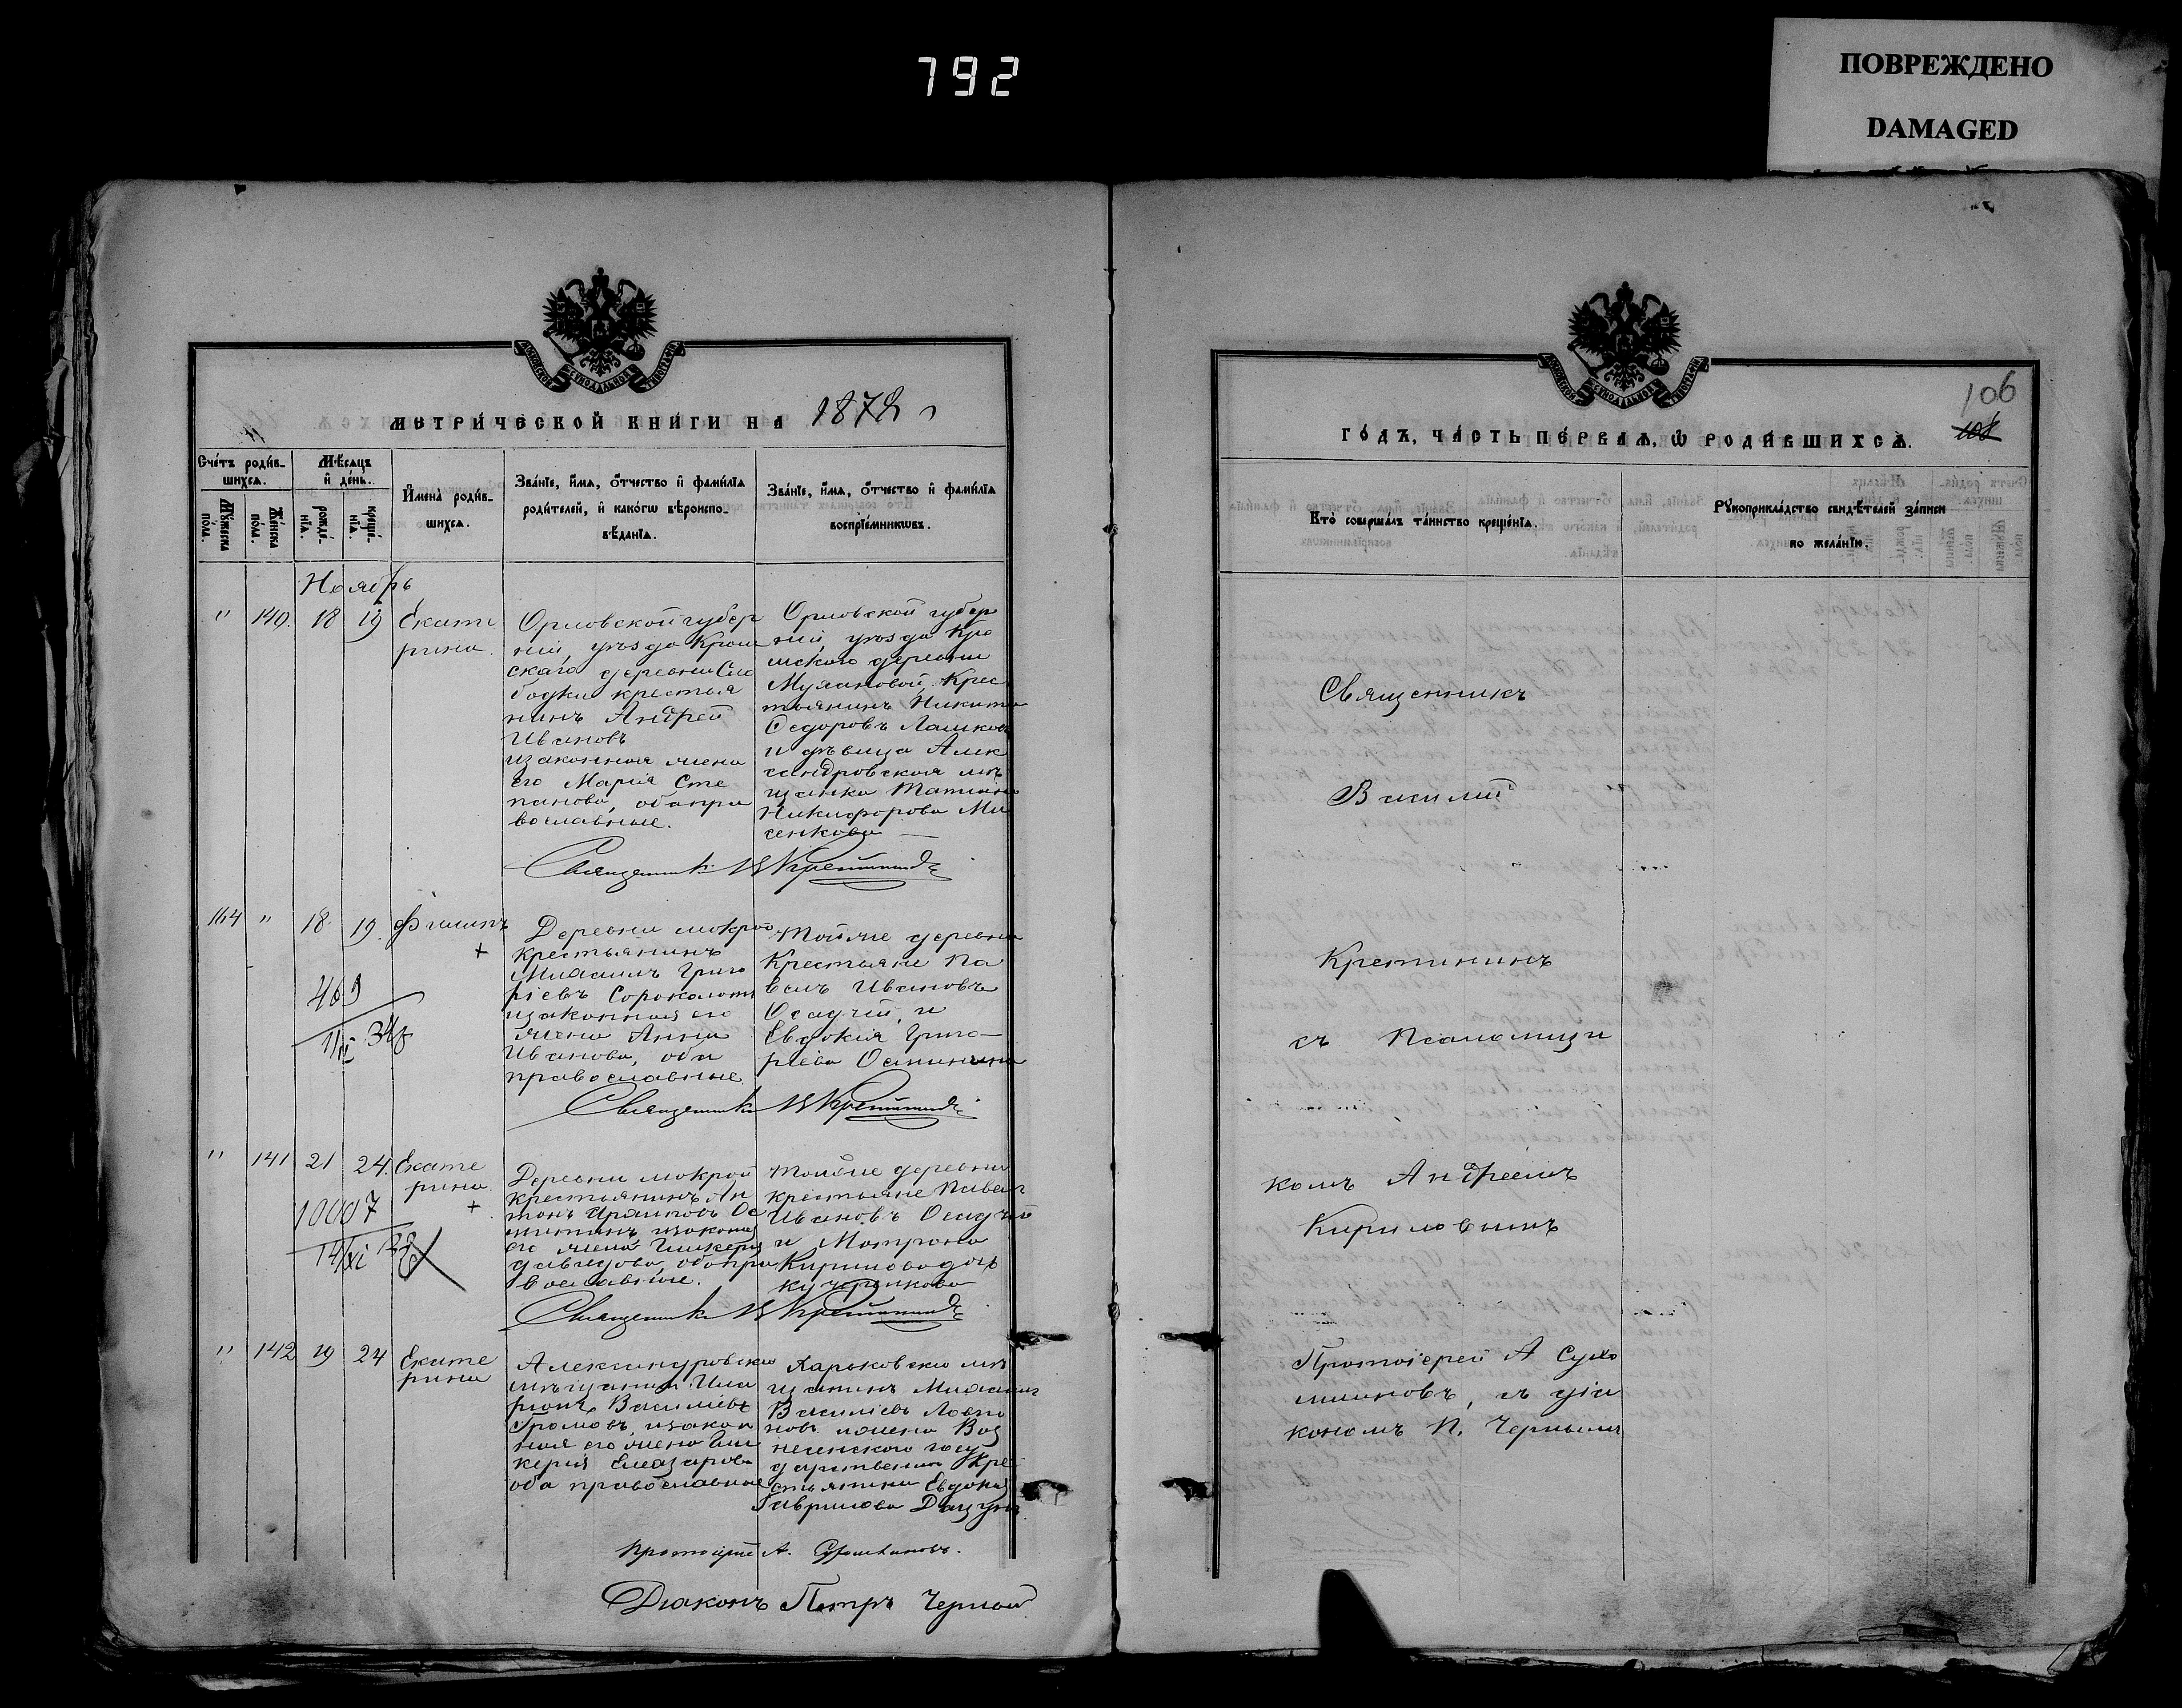 792
ПОВРЕЖДЕНО
DAMAGED
МЕТРИ́ЧЕСКОЙ КНИ́ГИ НА 1872
Сче́тъ роди́в-
шихсѧ.
Мѣ́сѧцъ
и҆ де́нь.
Мꙋ́жеска
по́ла.
Же́нска
по́ла.
рожде́-
нїѧ.
креще́-
нїѧ.
И҆мена̀ роди́в-
шихсѧ.
Зва́нїе, и҆́мѧ, ѻ҆́тчество и҆ фамі́лїѧ
роди́телей, и҆ како́гѡ вѣроиспо-
вѣ́данїѧ.
Зва́нїе, и҆́мѧ, ѻ҆́тчество и҆ фамі́лїѧ
воспрїе́мникѡвъ.
Ноябрь
" 140. 18 19 Екате
рина.
Орловской губер
ніи, уѣзда Кром
скаго деревни Сло
бодки крестья
нинъ Андрей
Ивановъ
изаконная жена
его Марія Сте
панова, оба пра
вославные.
Орловской губер
ніи, уѣзда Кро
мскаго деревни
Крес
тьянинъ Никита
Ѳедоровъ Лашковъ
и дѣвица Алек
сандровская мѣ
щанка Татіана
Никифорова Ми
сенкова
Священникъ В Кретининъ
164 " 18. 19. Филипъ
+
469
Деревни Мокрой
крестьянинъ
Михаилъ Григо
ріевъ
изаконная его
жена Анна
Иванова, оба
православные.
Тойже деревни
Крестьяне Па
велъ Ивановъ
Осадчій, и
Евдокія Григо-
ріева
Священникъ В Кретининъ
" 141 21 24. Екате
рина.
+
10007
14/XI
Деревни Мокрой
крестьянинъ Ан
тонъ
его жена Гликерія
Давидова, оба пра
вославные.
Тойже деревни
крестьяне Павелъ
Ивановъ Осадчій
и Матрона
Кирилова дочь
Священникъ В Кретининъ
" 142 19 24 Екате
рина
Александровскій
мѣщанинъ Ила
ріонъ Василіевъ
Громовъ, изакон
ная его жена Гли
керія Елеазарова
оба православные
Харьковскій мѣ
щанинъ Михаилъ
Василіевъ
новъ и жена Воз
несенскаго госу
дарственна Кре
стьянина Евдокія
Гаврилова
Протоіерей А. Сухомлиновъ.
Діаконъ Петръ Черный
106
108
ГО́ДЪ, ЧА́СТЬ ПЕ́РВАѦ, Ѡ҆ РОДИ́ВШИХСѦ.
Кто̀ соверша́лъ та́инство креще́нїѧ.
Рꙋкоприкла́дство свидѣ́телей за́писи
по жела́нїю.
Священникъ
Василій
Кретининъ
съ Псаломщи
комъ Андреемъ
Кириловымъ
Протоіерей А Сухо
млиновъ, съ діа
кономъ П. Чернымъ